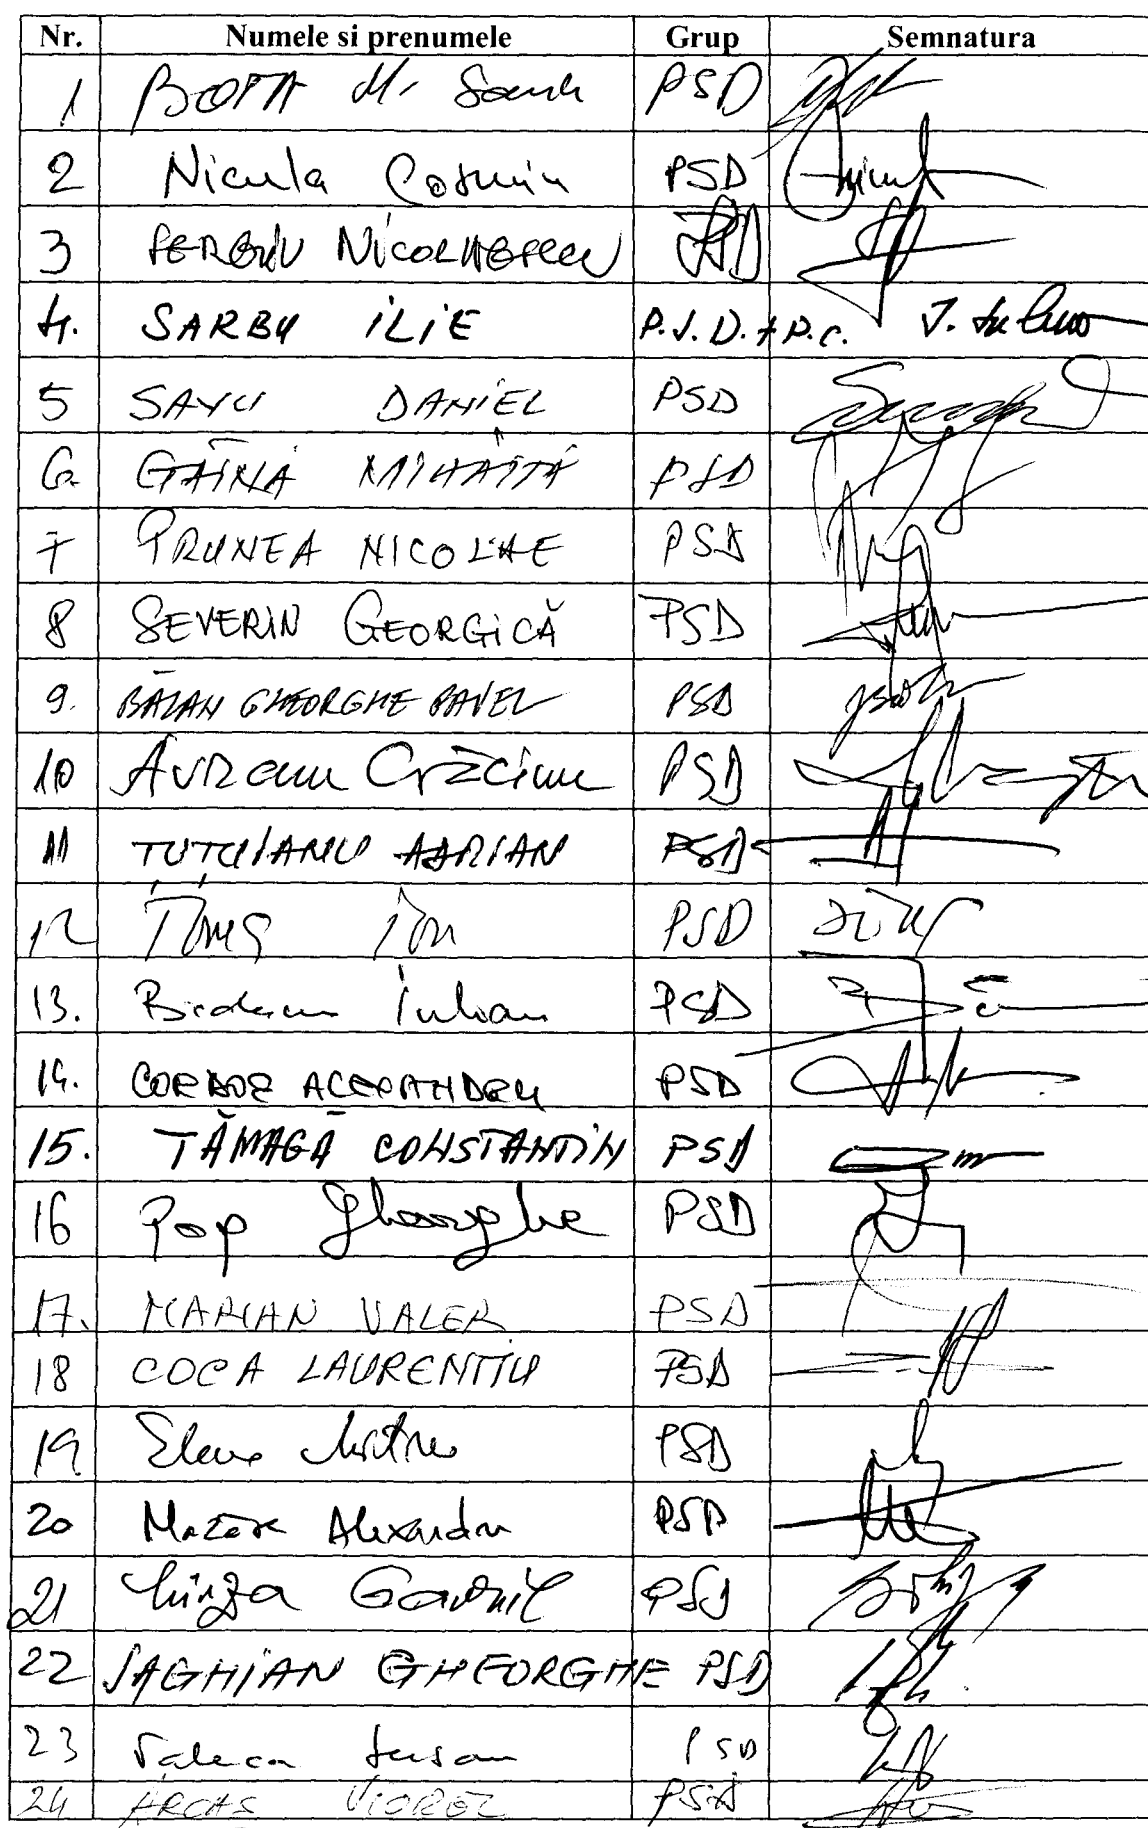 Nr. Numele si prenumele Grup Semnatura
1 BOTA M. Sanda PSD
2 Nicula Cosmin PSD
3 SERGIU NICOLAESCU PSD
4. SARBU ILIE P.S.D.+P.C.
5 SAVU DANIEL PSD
6. GĂINĂ MIHĂIȚĂ PSD
7 PRUNEA NICOLAE PSD
8 SEVERIN GEORGICĂ PSD
9. BĂLAN GHEORGHE PAVEL PSD
10 AVRam Crăciun PSD
11 ȚUȚUIANU ADRIAN PSD
12 Toma Ion PSD
13. Iulian PSD
14. CORDOȘ ALEXANDRU PSD
15. TĂMAGĂ CONSTANTIN PSD
16 Pop Gheorghe PSD
17. MARIAN VALER PSD
18 COCA LAURENTIU PSD
19 Elena Mitrea PSD
20 Mazăre Alexandru PSD
21 Mîrza Gavril PSD
22 SAGHIAN GHEORGHE PSD
23 Valeca Serban PSD
24 ARCAȘ VIOREL PSD